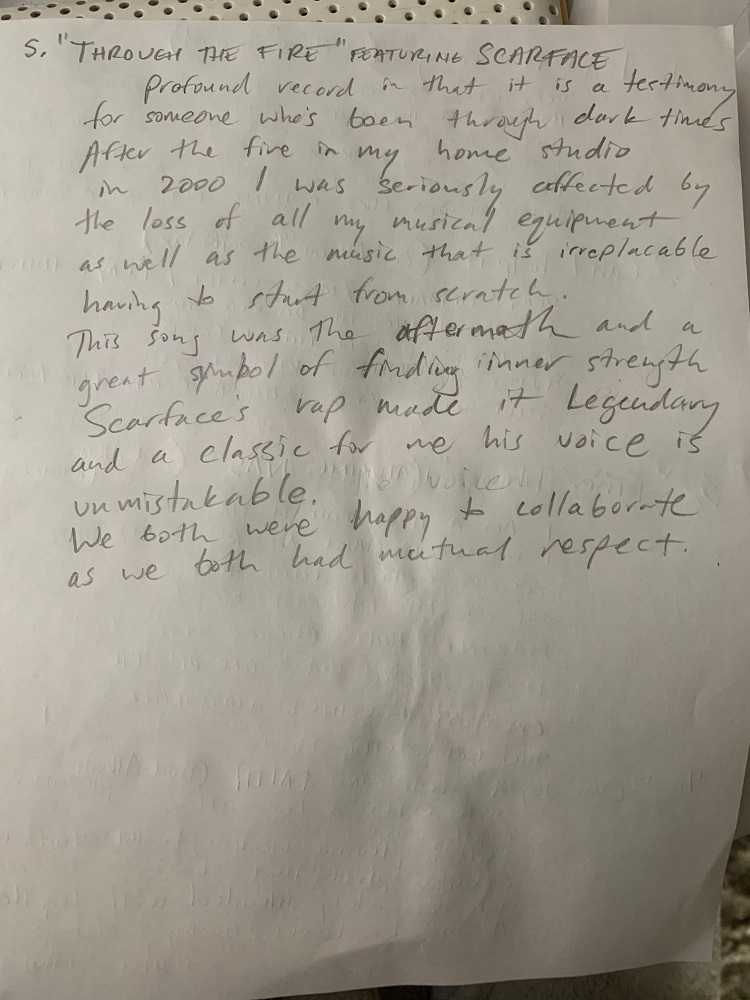 5. "THROUGH THE FIRE" FEATURING SCARFACE
Profound record in that it is a testimony
for someone who's been through dark times
After the fire in my home studio
in 2000 I was seriously affected by
the loss of all my musical equipment
as well as the music that is irreplacable
having to start from scratch.
This song was the aftermath and a
great symbol of finding inner strength
Scarface's rap made it Legendary
and a classic for me his voice is
unmistakable.
We both were happy to collaborate
as we both had mutual respect.